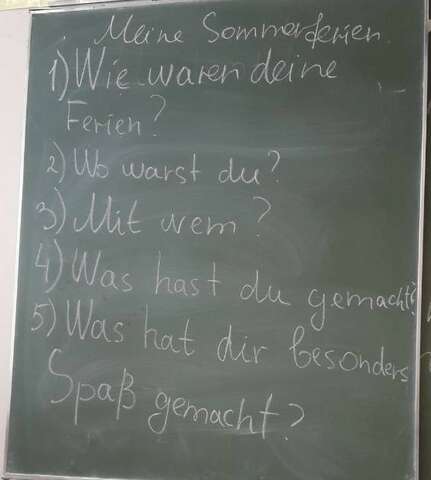 Meine Sommerferien.
1) Wie waren deine
Ferien?
2) Wo warst du?
3) Mit wem?
4) Was hast du gemacht?
5) Was hat dir besonders
Spaß gemacht?